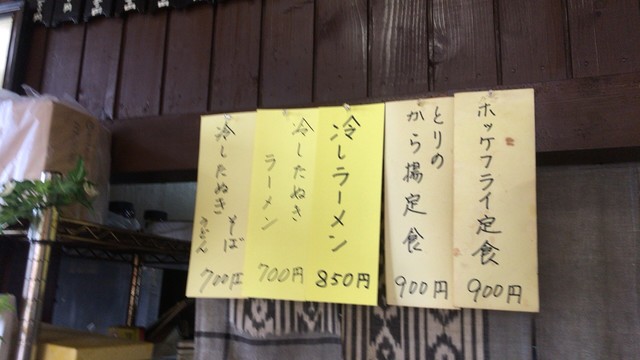 ホッケフライ定食
900円
とりの
から揚定食
900円
冷しラーメン
850円
冷したぬき
ラーメン
700円
冷したぬき
そば
うどん
700円